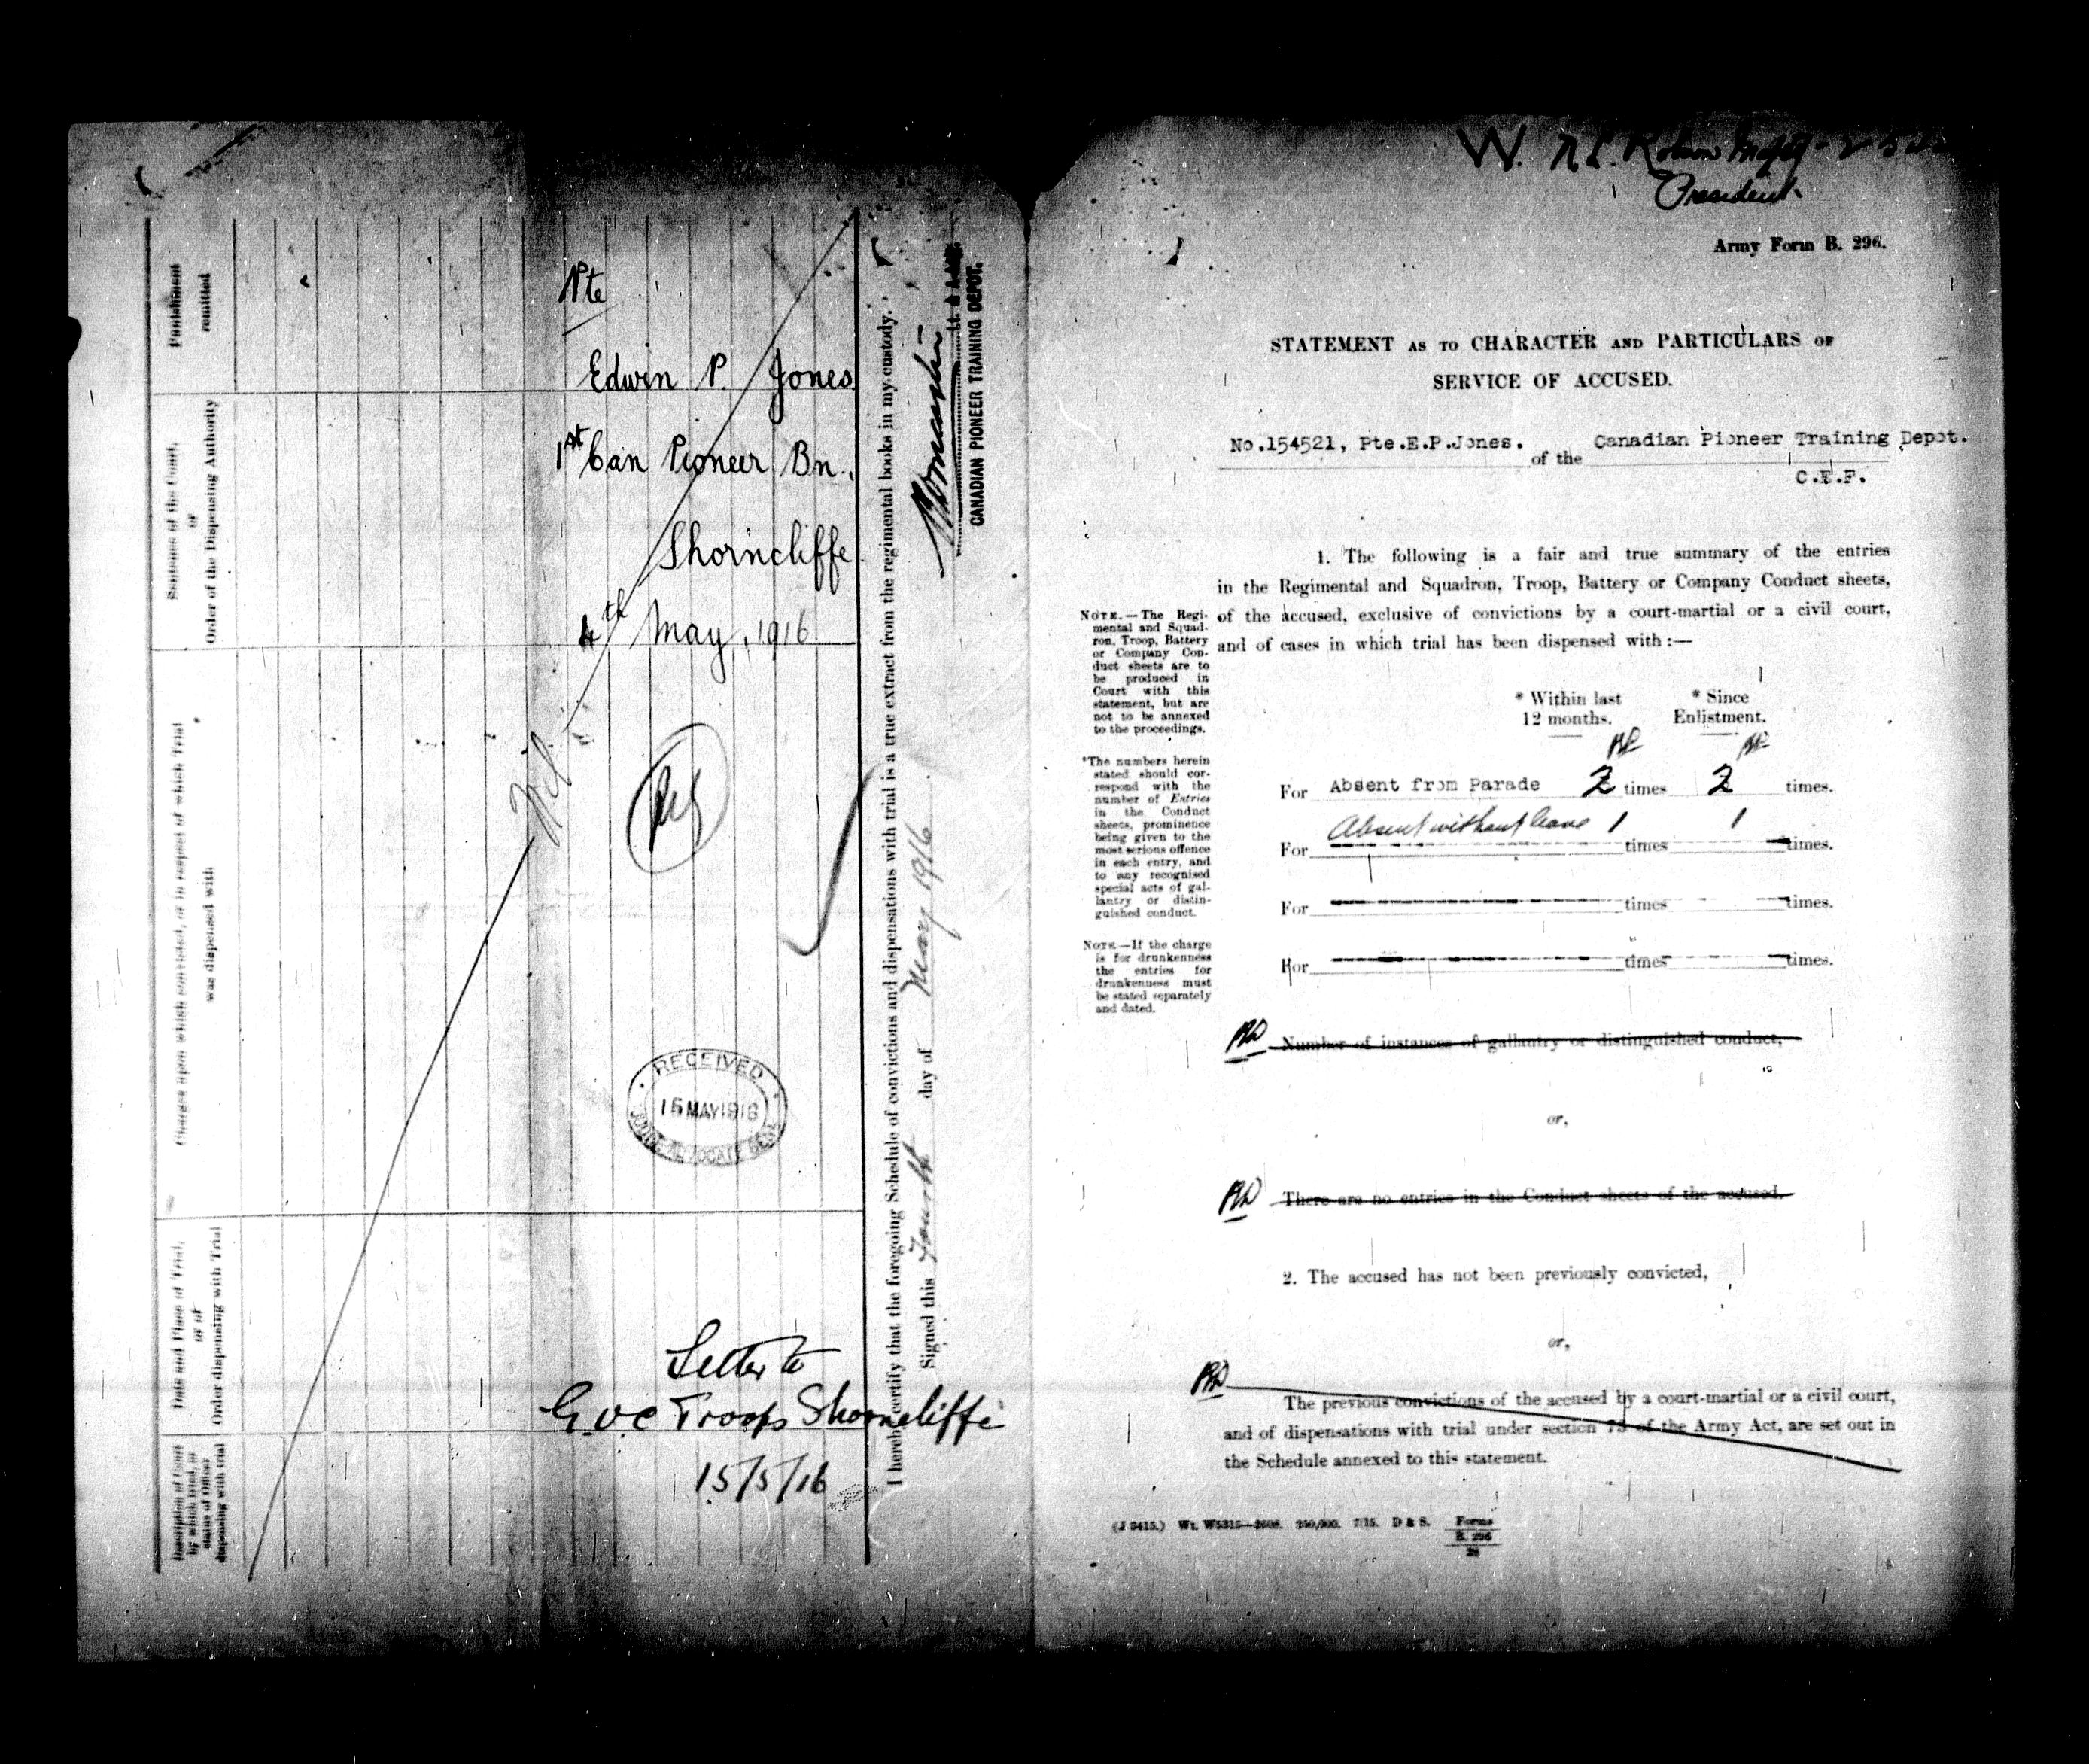 Punishment
remitted
Sentence of the Court,
or
Order of the Dispensing Authority
Charges upon which convicted, or in respect of which Trial
was dispensed with
Date and Place of Trial,
or of
Order dispensing with Trial
Description of Court
by which tried, or
status of Officer
dispensing with trial
Pte
Edwin P. Jones
1st Can Pioneer Bn.
Shorncliffe
4th May, 1916
Nil
RECEIVED
15 MAY 1916
JUDGE ADVOCATE GENL
Letter to
G.O.C Troops Shorncliffe
15/5/16
I hereby certify that the foregoing Schedule of convictions and dispensations with trial is a true extract from the regimental books in my custody.
Signed this Fourth day of May 1916
Lt. & Adjt.
CANADIAN PIONEER TRAINING DEPOT.
W.
President
Army Form B. 296.
STATEMENT AS TO CHARACTER AND PARTICULARS OF
SERVICE OF ACCUSED.
No.154521, Pte.E.P.Jones. of the Canadian Pioneer Training Depot.
C.E.F.
1. The following is a fair and true summary of the entries
in the Regimental and Squadron, Troop, Battery or Company Conduct sheets,
of the accused, exclusive of convictions by a court-martial or a civil court,
and of cases in which trial has been dispensed with :—
NOTE.—The Regi-
mental and Squad-
ron, Troop, Battery
or Company Con-
duct sheets are to
be produced in
Court with this
statement, but are
not to be annexed
to the proceedings.
*The numbers herein
stated should cor-
respond with the
number of Entries
in the Conduct
sheets, prominence
being given to the
most serious offence
in each entry, and
to any recognised
special acts of gal-
lantry or distin-
guished conduct.
NOTE.—If the charge
is for drunkenness
the entries for
drunkenness must
be stated separately
and dated.
* Within last
12 months.
* Since
Enlistment.
For Absent from Parade 2 times 2 times.
For Absent without leave 1 times 1 times.
For times times.
For times times.
Number of instances of gallantry or distinguished conduct,
or,
There are no entries in the Conduct sheets of the accused.
2. The accused has not been previously convicted,
or,
The previous convictions of the accused by a court-martial or a civil court,
and of dispensations with trial under section 73 of the Army Act, are set out in
the Schedule annexed to this statement.
(J 3415.) Wt. W5315—2608. 250,000. 7/15. D & S. Forms
B. 296